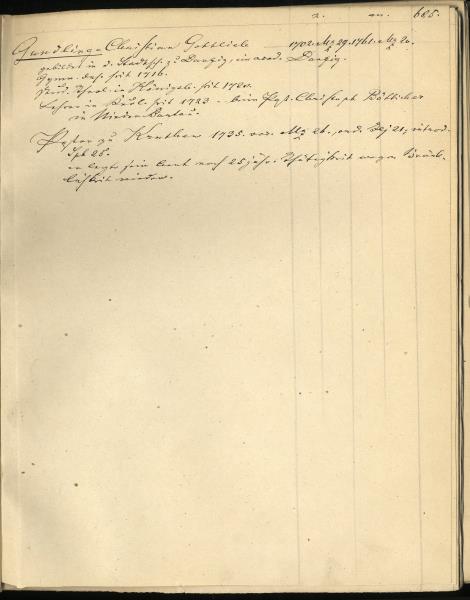 n. m. 685.
Gundling Christian Gottlieb 1702. Mz 29. 1761. Mz 20.
gebildet in d. Stadtsch. zu Danzig, in acad. Danzig.
Gymn. das. seit 1716.
Stud. Theol. in Königsb. seit 1720.
Lehrer in Kurl. seit 1723 - beim Past. Christoph Bötticher
in
Pastor zu 1735. voc. Mz 26. ord. 21, introd.
Spt 28.
er legte sein Amt nach 25jähr. Thätigkeit wegen Kränk-
lichkeit nieder.